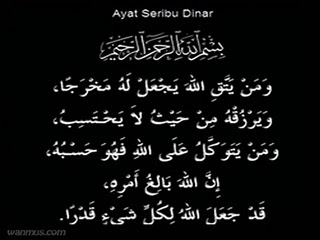 Ayat Seribu Dinar
بِسْمِ اللهِ الرَّحْمٰنِ الرَّحِيْمِ
وَمَنْ يَتَّقِ اللهَ يَجْعَلْ لَهُ مَخْرَجًا،
وَيَرْزُقْهُ مِنْ حَيْثُ لاَ يَحْتَسِبُ،
وَمَنْ يَتَوَكَّلْ عَلَى اللهِ فَهُوَ حَسْبُهُ،
إِنَّ اللهَ بَالِغُ أَمْرِهِ،
قَدْ جَعَلَ اللهُ لِكُلِّ شَيْءٍ قَدْرًا.
wanmus.com